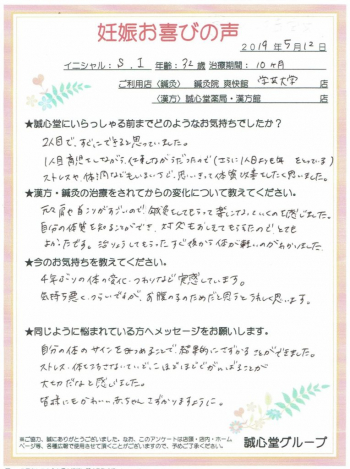 妊娠お喜びの声
2019年5月12日
イニシャル：S.I 年齢：32歳 治療期間：10ヶ月
ご利用店〈鍼灸〉 鍼灸院 爽快館 学芸大学 店
〈漢方〉誠心堂薬局・漢方館 店
★誠心堂にいらっしゃる前までどのようなお気持ちでしたか？
2人目で、すぐにできると思っていました。
1人目育児をしながら、仕事 (さらに1人目よりも年をとっている)
ストレスや体 思いきって体質改善をしたいと思いました。
★漢方・鍼灸の治療をされてからの変化について教えてください。
肩こりがすごいので鍼灸をしてもらって楽になっていくのを感じました。
自分の体質を知ることができ、対処もおしえてもらえたのでとても
よかったです。治りょうしてもらったすぐ後から体が軽いのがわかりました。
★今のお気持ちを教えてください。
4年ぶりの体の変化、つわりなど実感しています。
気持ち悪く、つらいですが、お腹の子のためだと思うとうれしく思います。
★同じように悩まれている方へメッセージをお願いします。
自分の体のサインを見つめることで、結果的にさずかることができました。
ストレス、体 ほどほどでがんばることが
大切だなと感じました。
皆様にもかわいい赤ちゃんさずかりますように。
※ご協力、誠にありがとうございました。なお、このアンケートは店頭・店内・ホーム
ページ等、各種広報で使用させて頂くことがございますので、予めご了承ください。
誠心堂グループ